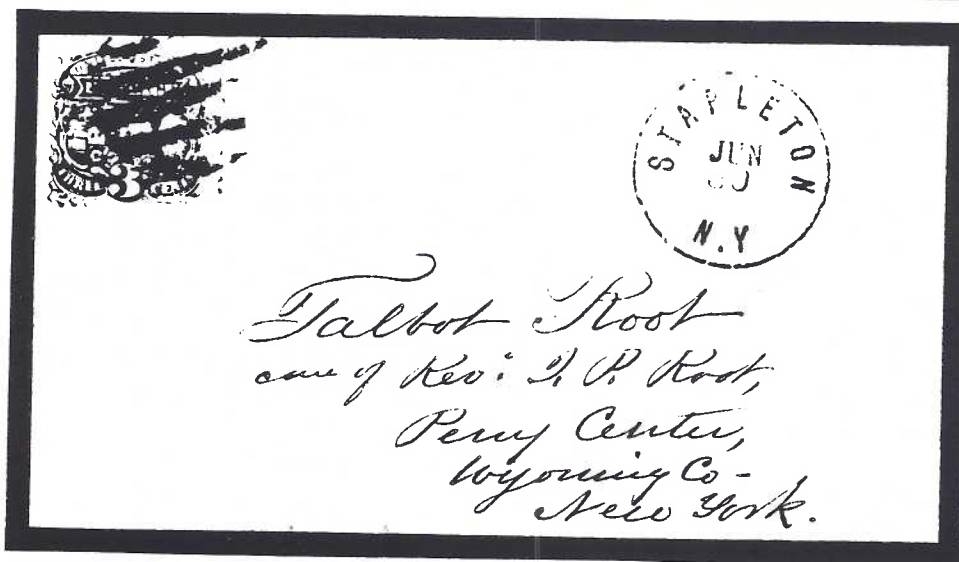 STAPLETON
JUN
30
N.Y
3
Talbot Root
care of Rev: T. P. Root,
Perry Center,
Wyoming Co-
New York.